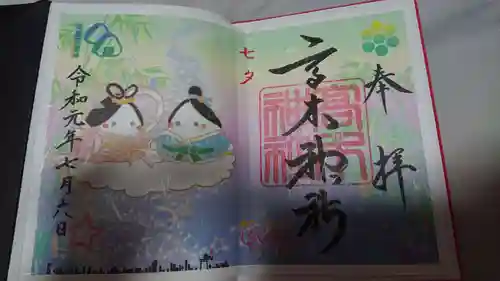 奉拝
高木神社
高木
神社
七夕
令和元年七月十八日